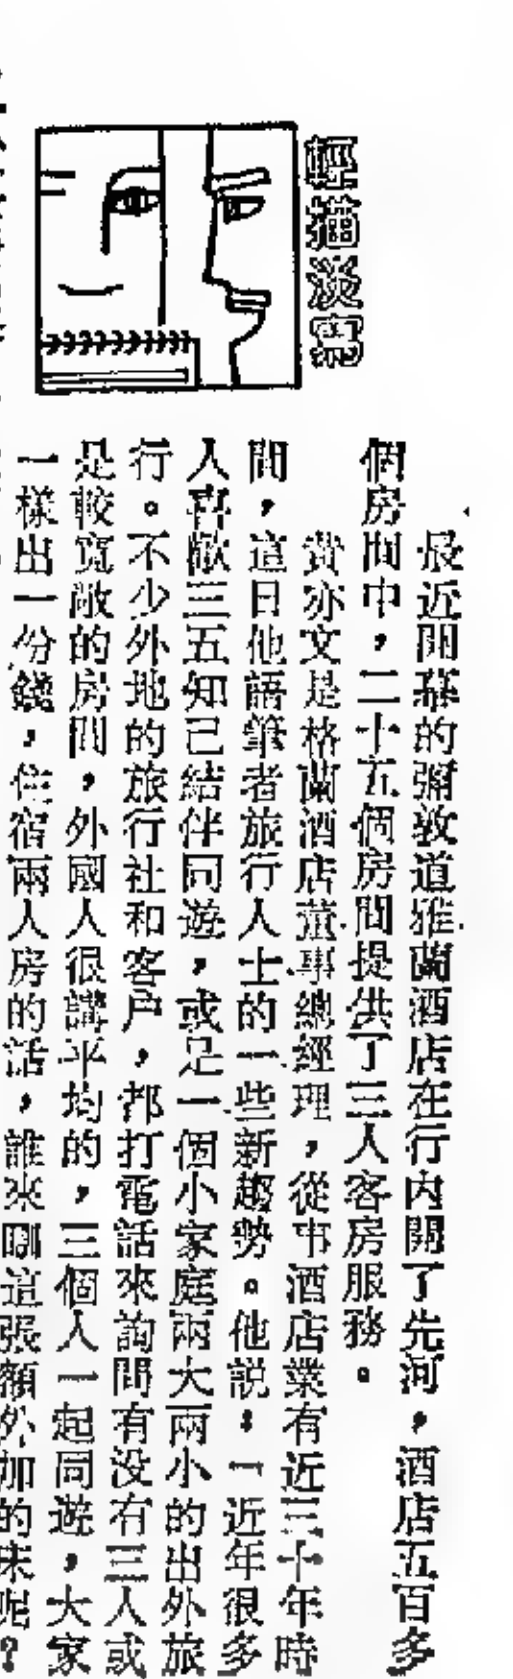 輕描淡寫
最近開幕的彌敦道雅蘭酒店在行內開了先河，酒店五百多
個房間中，二十五個房間提供了三人客房服務。
黄亦文是格蘭酒店董事總經理，從事酒店業有近三十年時
間，這日他語筆者旅行人士的一些新趨勢。他説：「近年很多
人喜歡三五知己結伴同遊，或是一個小家庭兩大兩小的出外旅
行。不少外地的旅行社和客戶，都打電話來詢問有没有三人或
是較寬敞的房間，外國人很講平均的，三個人一起同遊，大家
一樣出一份錢，住宿兩人房的話，誰來瞓這張額外加的床呢？